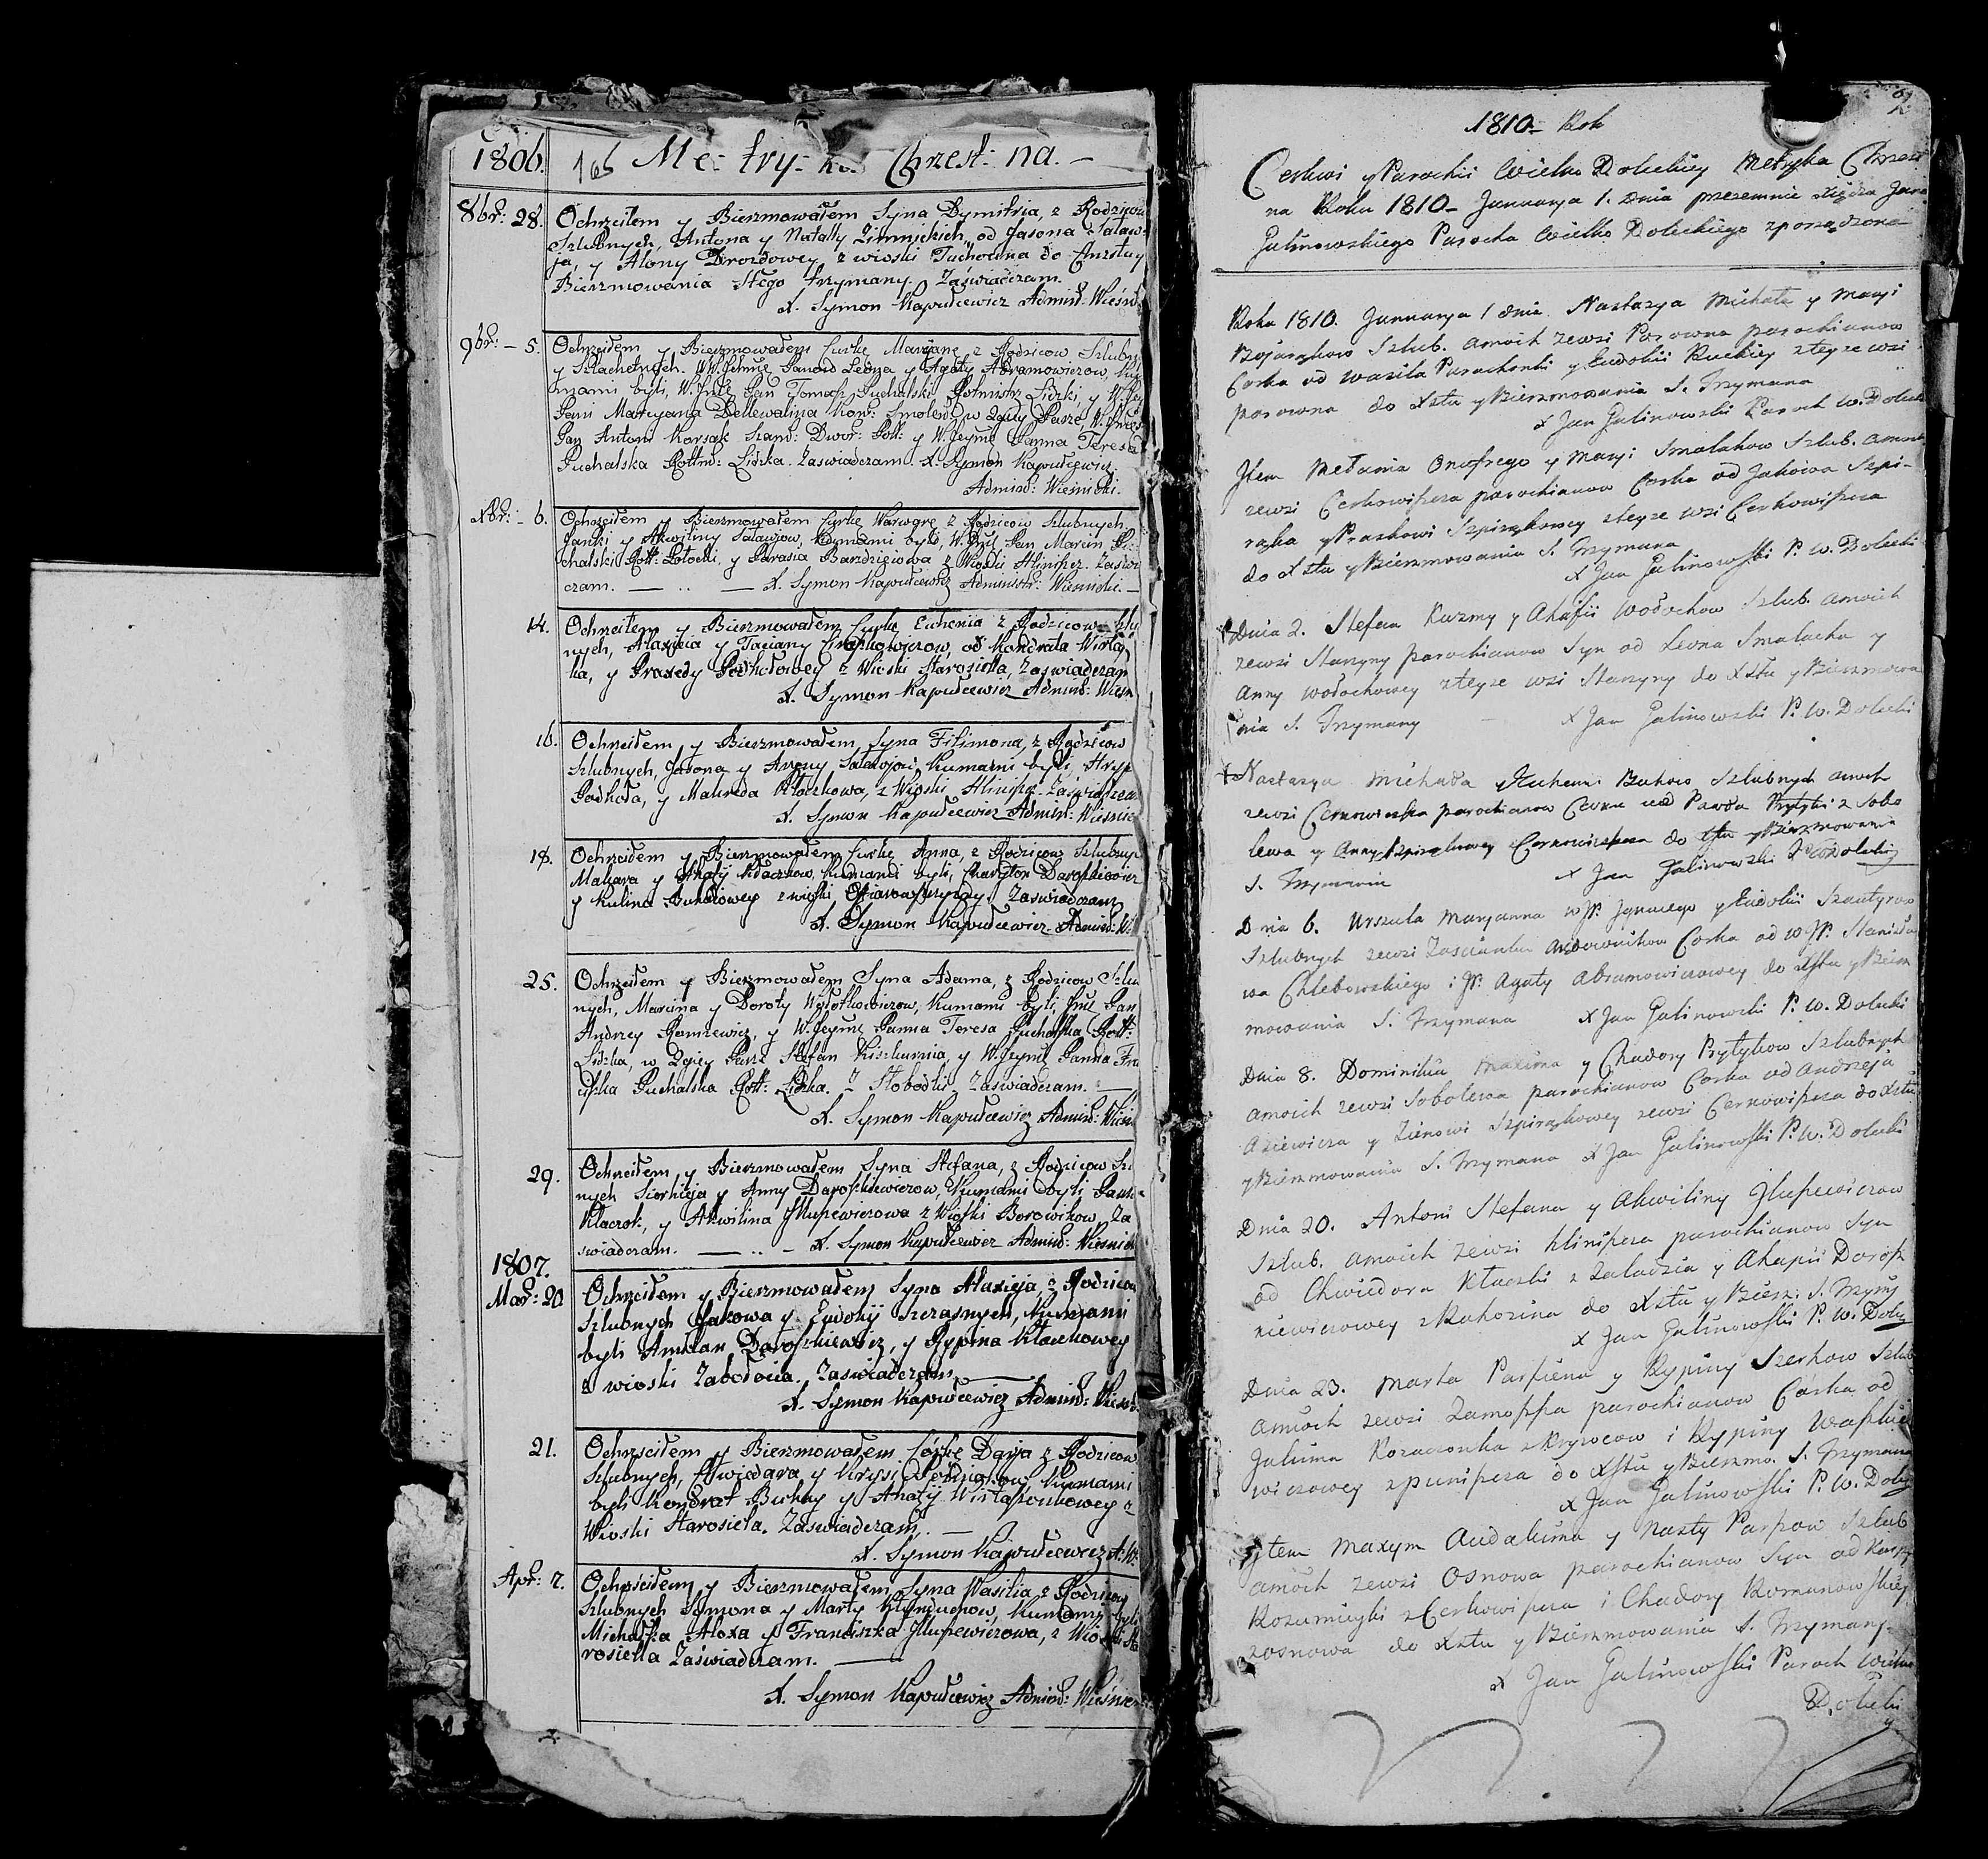 1806. 165 Me- try- ka Chrzest: na. -
8br: 28. Ochrzciłem y Bierzmowałem Syna Dymitria, z Rodzicow
Szlubnych, Antona y Natally Zimnickich, od Jasona Saław-
ja, y Alony Drozdowey, z wioski Tuchowna do Chrztu y
Bierzmowania Stego trzymany. Zaświadczam.
X. Symon Kapuscewicz Admind: Wieśn
9br: - 5. Ochrzciłem y Bierzmowałem Curkę Maryanę z Rodzicow Szlubny
y Szlachetnych. WW. Jchmć Panow Leona y Agaty Abramowiczow, Ku
mami byli, W. Jmć Pan Tomasz Puchalski Rotmistrz Lidzki, y W. Jey
Pani Maryanna Dellewalina Kow: Smoleń: w 2giey Parze, W. Jmć
Pan Antoni Korsak Szam: Dwor: Poll: y W. Jeymć Panna Teressa
Puchalska Rottm: Lidzka. Zaswiadczam. X. Symon Kapuscewicz
Admind: Wieśnicki.
Xbr: - 6. Ochrzciłem y Bierzmowałem Curkę Warwarę z Rodzicow Szlubnych
Janki y Akwiliny Saławiow, Kumami byli, W. Jmć Pan Marcin Pu-
chalski Rott: Połocki, y Parasia Barzdziejowa z Wioski Hlinisz. Zaswi
czam. — .. — X. Symon Kapuscewicz Administr: Wieśnicki. -
14. Ochrzciłem y Bierzmowałem Curkę Euhenia z Rodzicow Szlu
nych, Alaxieia y Taciany Ciapkowiczow, od Kondrata
ka, y Praxedy Podhołowey z Wioski Starosiella, Zaswiadczam
X. Symon Kapuscewicz Admind: Wieśn
16. Ochrzciłem y Bierzmowałem Syna Filimona, z Rodzicow
Szlubnych, Jasona y Aryny Saławjow, Kumami byli, Hryh
Podhoła, y Malweda Kłaczkowa, z Wioski Zaświadczam
X. Symon Kapuscewicz Admind: Wieśnic
18. Ochrzciłem y Bierzmowałem Curkę Anna, z Rodzicow Szlubny
Makara y Ahaty Kłaczkow, Kumami byli, Charyton Daroszkiewicz
y Kulina Buhałowey z wioski Zaswiadczam
X. Symon Kapuscewicz Admind: Wi
25. Ochrzciłem y Bierzmowałem Syna Adama, z Rodzicow Szlu
nych, Marcina y Doroty Kumami byli, Jmć Pan
Andrzey Ramszewicz, y W. Jeymć Panna Teresa Puchalska Rott:
Lidzka, w 2giey Parze Stefan Kiszkurnia, y W. Jeymć Panna Fra
ciszka Puchalska Rott: Lidzka. Z Słobodki, Zaswiadczam. —
X. Symon Kapuscewicz Admind: Wieśn
29. Ochrzciłem y Bierzmowałem Syna Stefana, z Rodzicow Szl
nych Siorhieja y Anny Daroszkiewiczow, Kumami byli Pauł
Kłaczok, y Akwilina Hlupewiczowa z Wioski Borowikow, Za
świadczam. — .. - X. Symon Kapuscewicz Admind: Wieśnick
1807.
Mar: 20 Ochrzciłem y Bierzmowałem Syna Alaxieja, z Rodzicow
Szlubnych Jakowa y Eudokij Szczasnych, Kumami
byli Amilan Daroszkiewicz, y Rypina Kłaczkowey
z wioski Zabołocia. Zaswiadczam. —
X. Symon Kapuscewicz Admind: Wieśn
21. Ochrzciłem y Bierzmowałem Córkę Darja z Rodzicow
Szlubnych, Chwiedara y Krysi Kumami
byli Kondrat Buhay y Ahatij z
Wioski Starosiela. Zaswiadczam. —
X. Symon Kapuscewicz A: W
Apr: 7. Ochrzciłem y Bierzmowałem Syna Wasilia, z Rodzicow
Szlubnych Symona y Marty Kumamy byli
Michałka Aloxa y Franciszka Hlupewiczowa, z Wioski Sta
rosiella Zaświadczam. —
X. Symon Kapuscewicz Admind: Wieśnic
1810 - Rok
Cerkwi y Parochii Wielko Doleckiey Metryka Chrzest
na Roku 1810 - Januarya 1. dnia przezemnie Xiędza Jana
Galinowskiego Parocha Wielko Doleckiego zporządzona
Roku 1810. Januarya 1 dnia Nastazya Michała y Maryi
Bojarzykow Szlub. amoich zewsi Porowna parochianow
Corka od Wasila Parachonki y Eudokii Ruckiey zteyze wsi
Porowna do Xztu y Bierzmowania S. Trzymana
X Jan Galinowski Paroch W. Doleck
Jtem Mełania Onofrego y Maryi Smalakow Szlub. amoich
zewsi Cerkowiszcza parochianow Corka od Jakowa Szpi-
raka y Praskowi Szpirakowey zteyze wsi Cerkowiszcza
do Xztu y Bierzmowania S. Trzymana
X Jan Galinowski P. W. Dolecki
Dnia 2. Stefan Kuzmy y Ahafii Wołochow Szlub. amoich
zewsi Starzyny parochianow Syn od Leona Smalucha y
Anny Wołochowey zteyze wsi Starzyny do Xztu y Bierzmowa
nia S. Trzymany - X Jan Galinowski P. W. Dolecki
Nastazya Michała y Euhenii Szlubnych amoich
zewsi parochianow Corka od Pawła z Sobo
lewa y Anny Szpirakowey do Xztu y Bierzmowania
S. Trzymana X Jan Galinowski P. W. Dolecki
Dnia 6. Urszula Maryanna WJP. Jgnacego y Eudokii Szantyrow
Szlubnych zewsi Zascianku Corka od WJP. Stanisła
wa Chlebowskiego i JP. Agaty Abramowiczowey do Xztu y Bierz
mowania S. Trzymana X Jan Galinowski P. W. Dolecki
Dnia 8. Dominika Maxima y Chadory Prytykow Szlubnych
amoich zewsi Sobolewa parochianow Corka od Andrzeja
Aziewicza y Zienowi Szpirakowey zewsi Cerkowiszcza do Xztu
y Bierzmowania S. Trzymana X Jan Galinowski P. W. Dolecki
Dnia 20. Antoni Stefana y Akwiliny Hlupewiczow
Szlub. amoich zewsi Hliniszcza parochianow Syn
od Chwiedora Kłaczki z Zaladzia y Ahapii Darosz
kiewiczowey zRahozina do Xztu y Bierz. S. Trzym
X Jan Galinowski P. W. Dole
Dnia 23. Marta Parfiena y Rypiny Szerkow Szlub
amoich zewsi Zamoszsza parochianow Corka od
Jaluma Kozaczonka i Rypiny Waszkie
wiczowey do Xztu y Bierzmo. S. Trzymana
X Jan Galinowski P. W. Dole
Jtem Maxym Audakima y Nasty Karpow Szlub
amoich zewsi Osnowa parochianow Syn od
zCerkowiszcza i Chadory Romanowskiey
zOsnowa do Xztu y Bierzmowania S. Trzymany
X Jan Galinowski Paroch Wielko
Dolecki